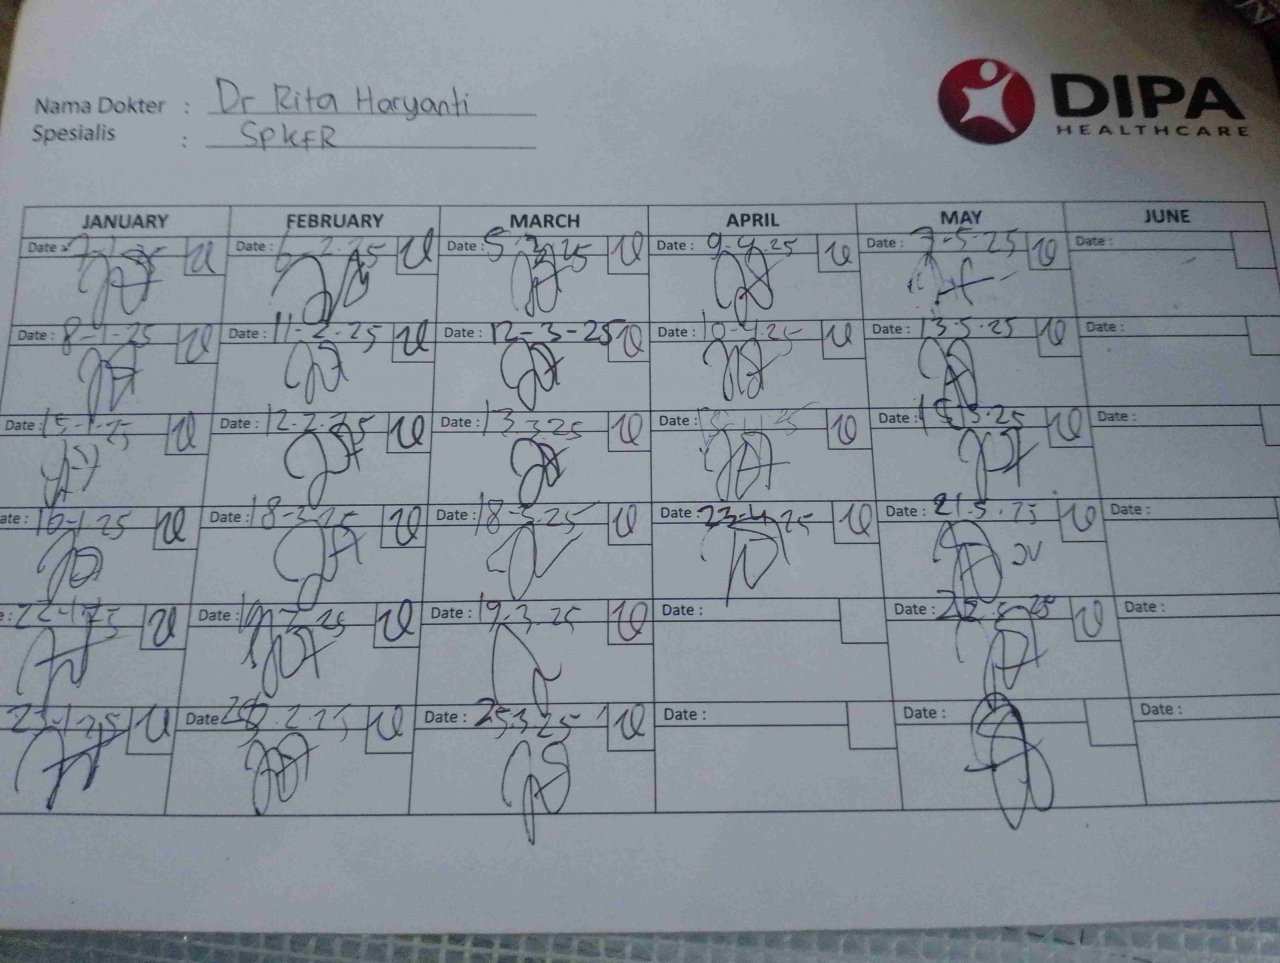 Nama Dokter : Dr Rita Haryanti
Spesialis : SpkFR
DIPA
HEALTHCARE
JANUARY FEBRUARY MARCH APRIL MAY JUNE
Date : Date : 6-2-25 Date : 5-3-25 Date : 9-4-25 Date : 7-5-25 Date :
Date : 8-1-25 Date : 11-2-25 Date : 12-3-25 Date : 10-4-25 Date : 13.5.25 Date :
Date : 15-1-25 Date : 12-2-25 Date : 13 3.25 Date : Date : 15-5-25 Date :
ate : 16-1.25 Date : Date : 18-3.25 Date : 23-4.25 Date : 21.5.25 Date :
e : 22-1-25 Date : 19-2-25 Date : 19.3.25 Date : Date : Date :
23-1-25 Date : 2.25 Date : 25.3.25 Date : Date : Date :